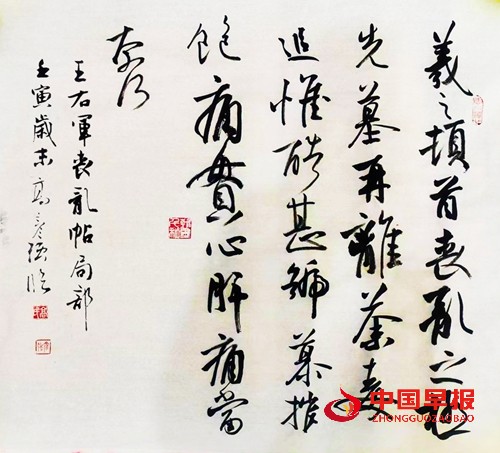 羲之頓首喪亂之極
先墓再離荼毒
追惟酷甚號慕摧
絶痛貫心肝痛當
奈何
王右軍喪亂帖局部
壬寅歲末高彥强臨
中国早报
ZHONGGUOZAOBAO